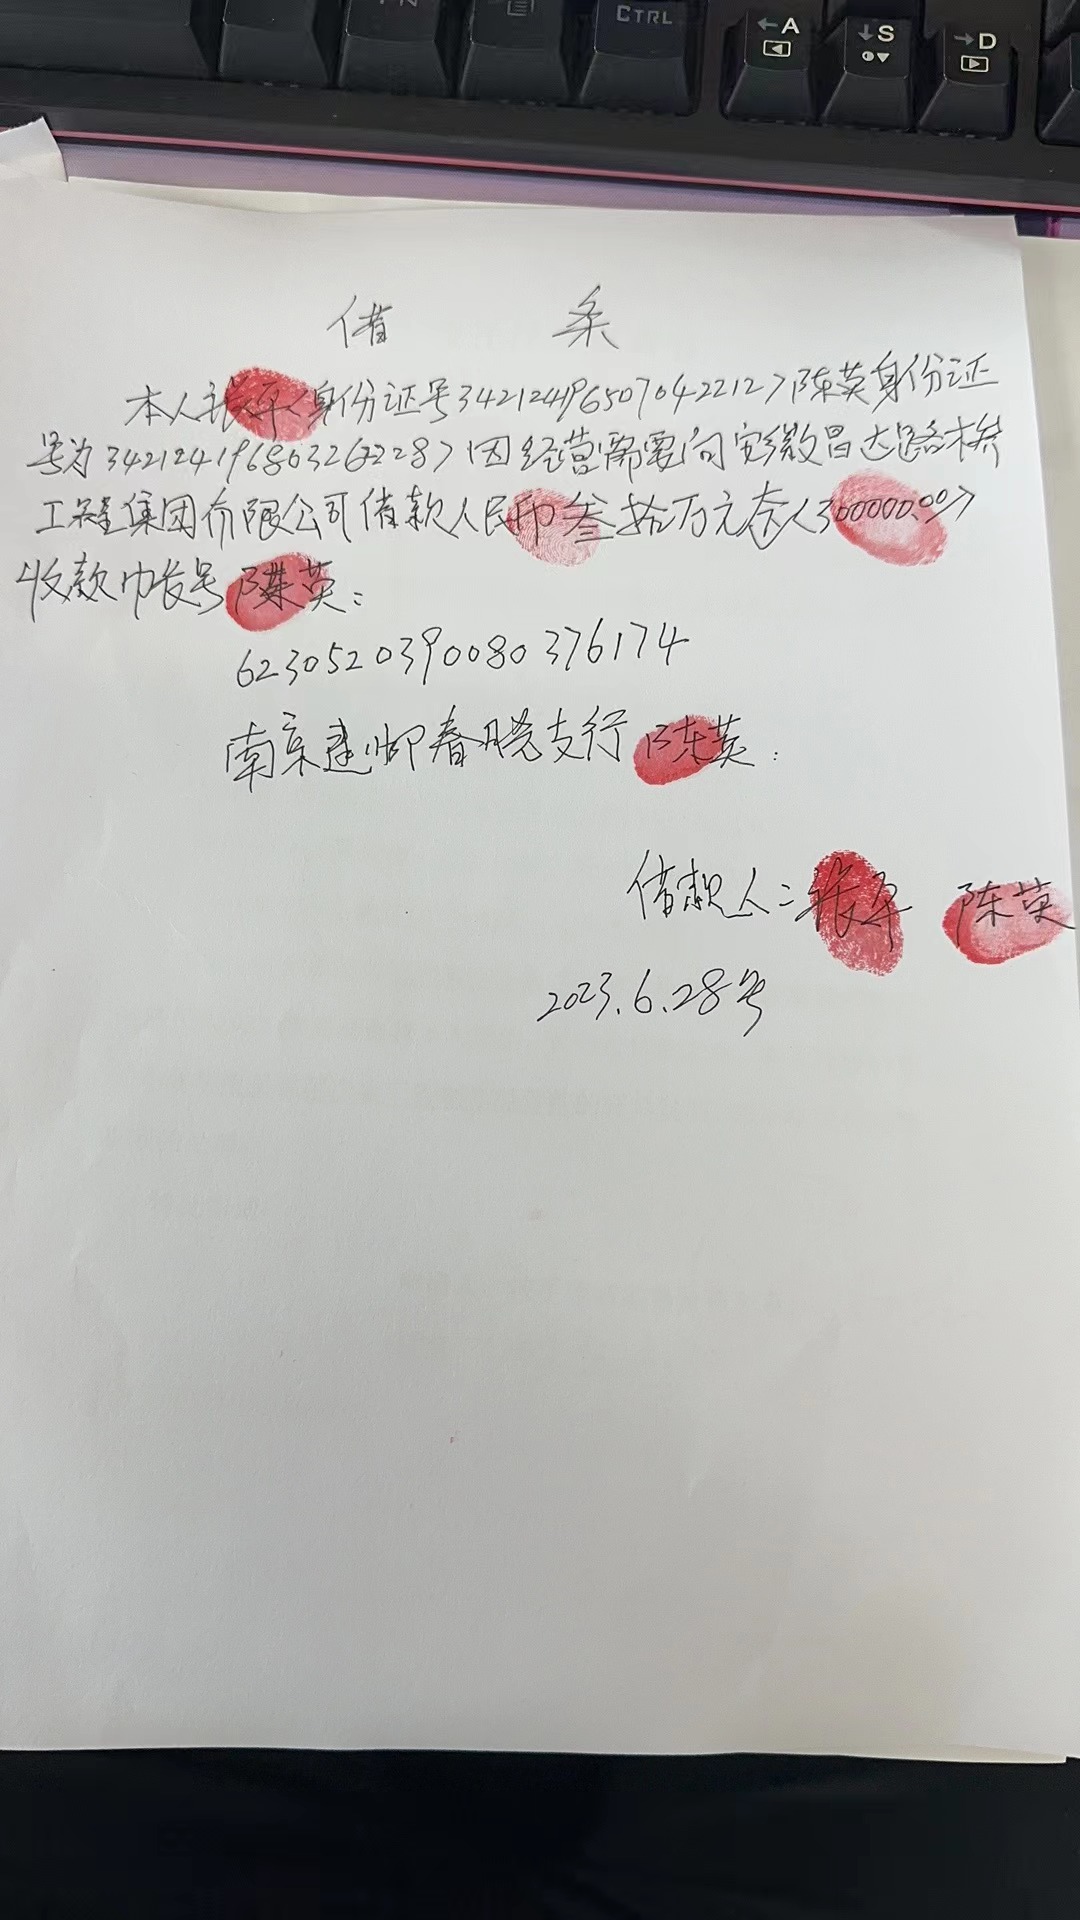 FN
CTRL
←A ↓S →D
借 条
本人张军〈身份证号342124196507042212〉陈英身份证
号为342124196803262228〉因经营需要向安徽昌达路桥
工程集团有限公司借款人民币叁拾万元夲人300000.00〉
收款帐号陈英:
6230520390080376174
南京建邺春晓支行陈英:
借款人:张军 陈英
2023.6.28号